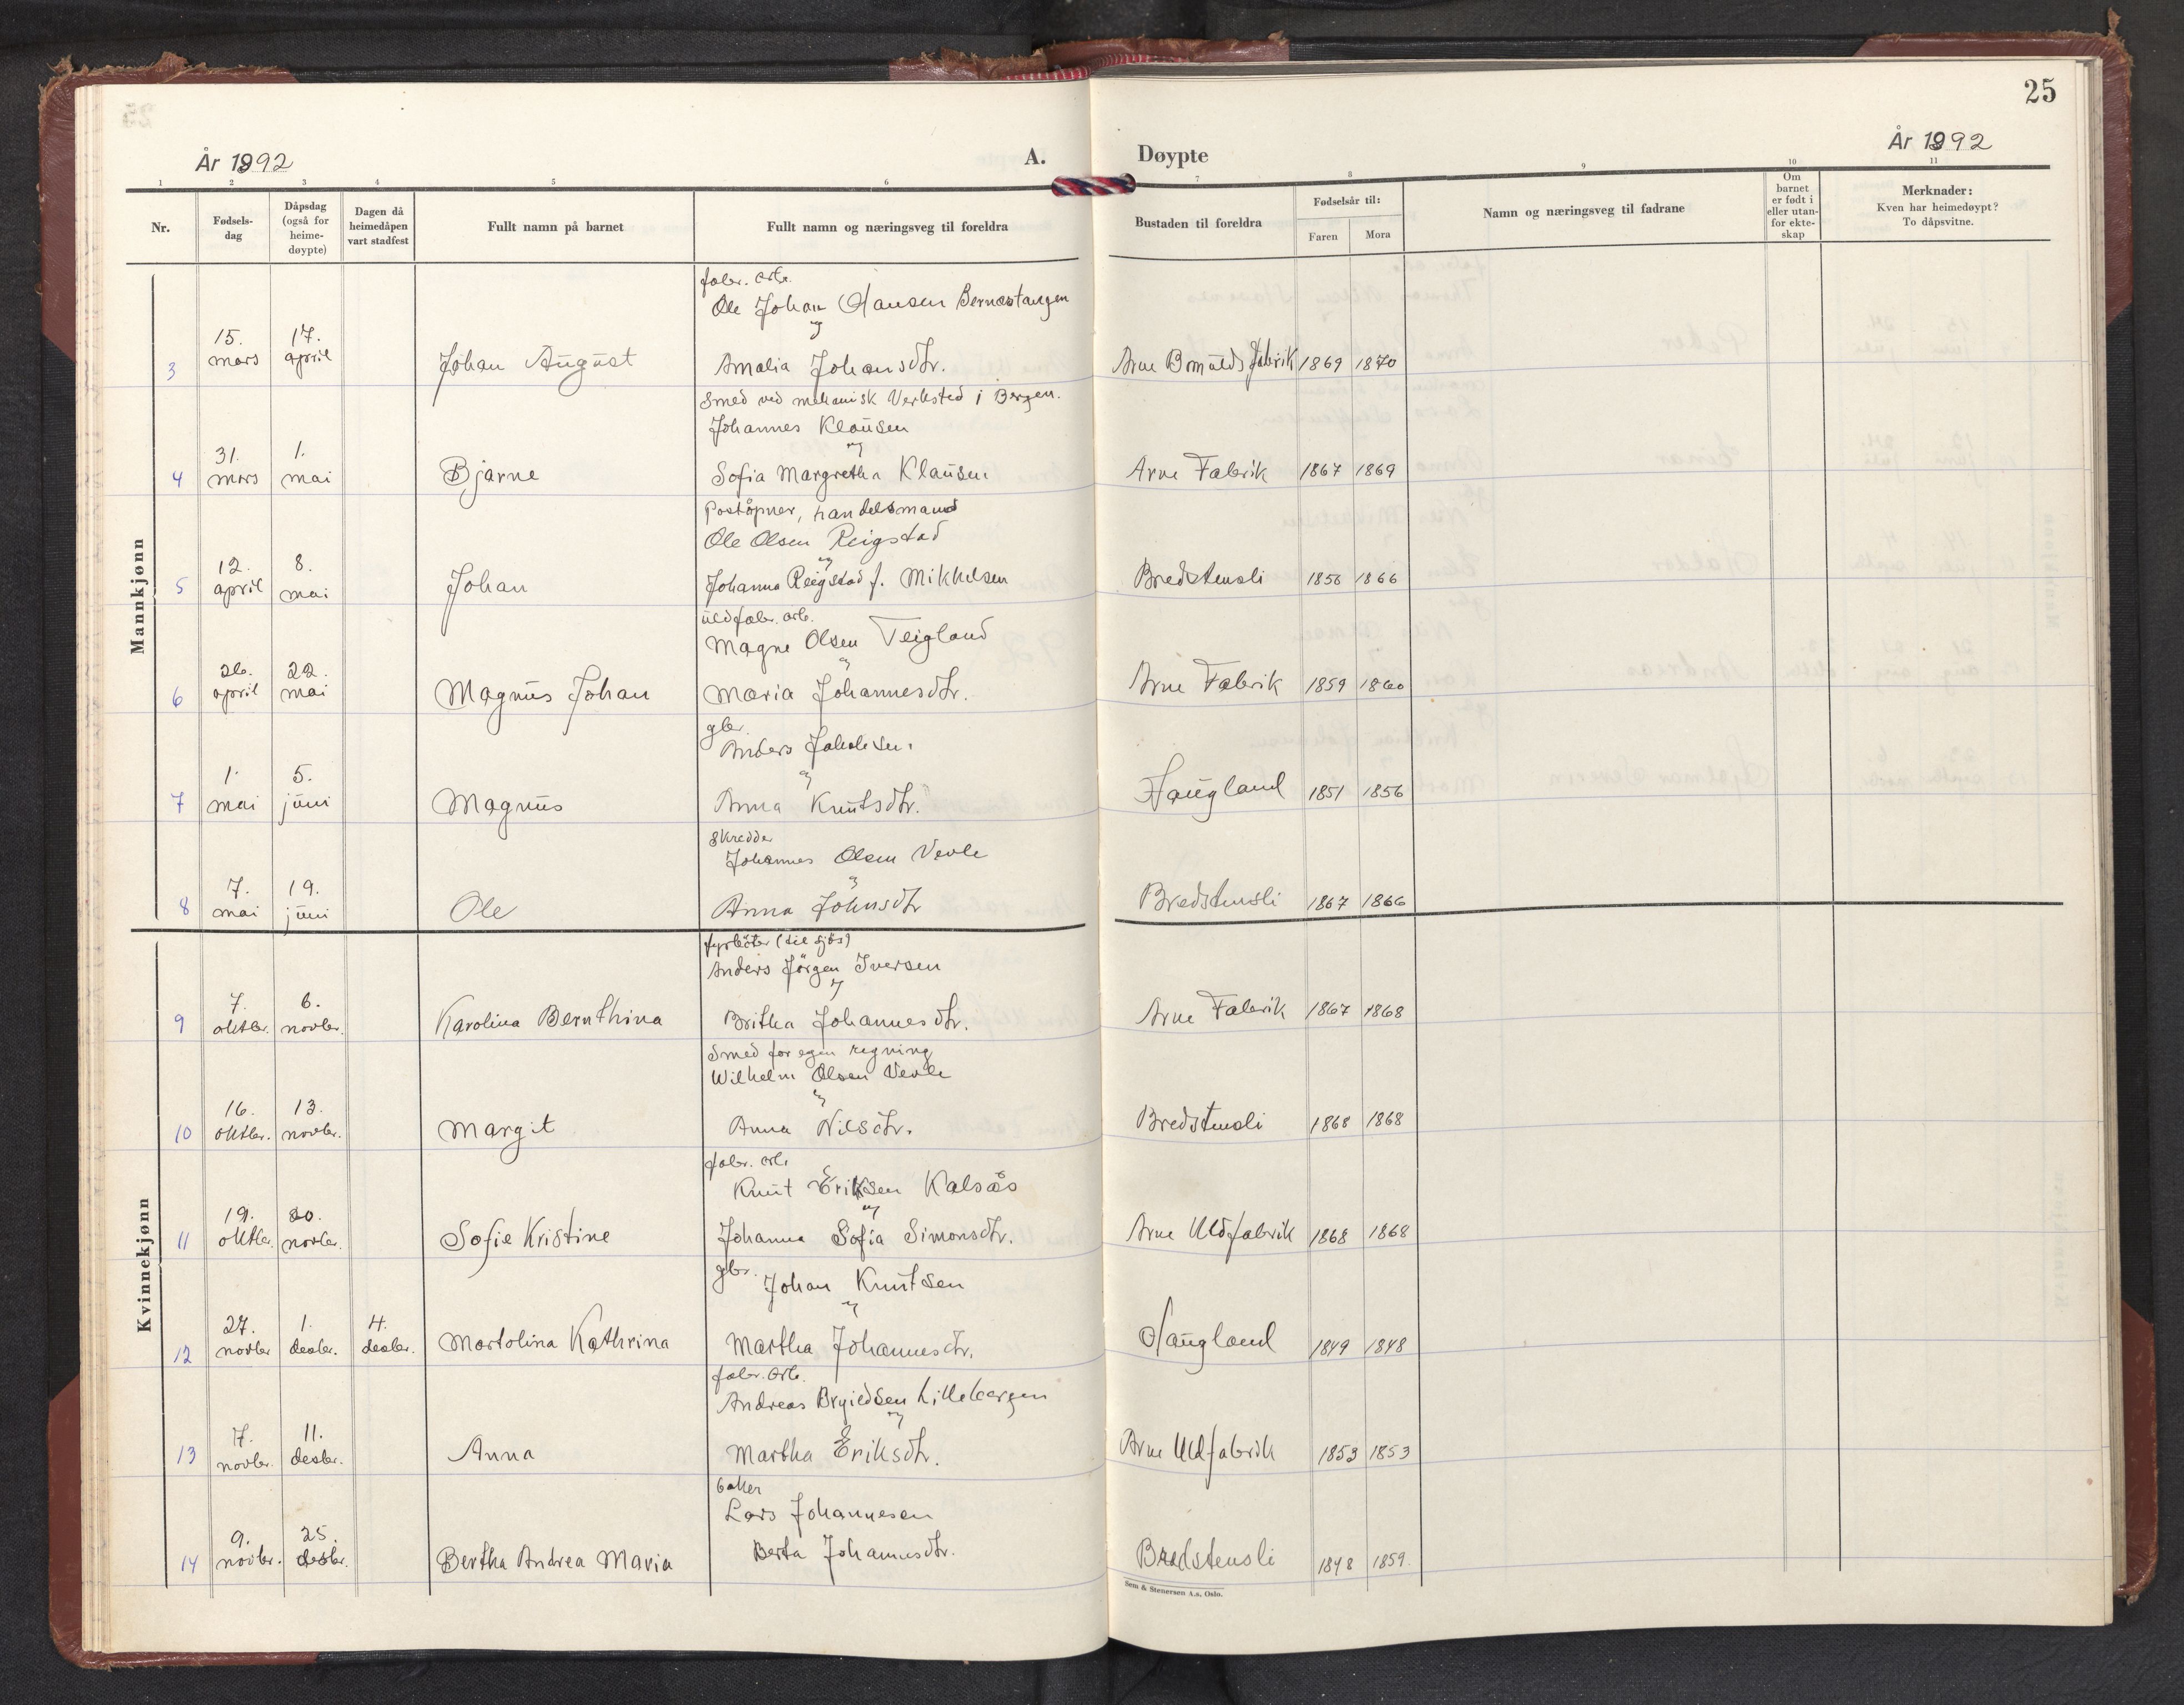 25
År 1892
A.
Døypte
År 1892
1 2 3 4 5 6 7 8 9 10 11
Nr.
Fødsels-
dag
Dåpsdag
(også for
heime-
døypte)
Dagen då
heimedåpen
vart stadfest
Fullt namn på barnet
Fullt namn og næringsveg til foreldra
Bustaden til foreldra
Fødselsår til:
Faren Mora
Namn og næringsveg til fadrane
Om
barnet
er født i
eller utan-
for ekte-
skap
Merknader:
Kven har heimedøypt?
To dåpsvitne.
Mannkjønn
fabr. arb.
Ole Johan Hansen Bernestangen
og
3 15. mars 17. april Johan August Amalia Johansdtr. Arne Bomulds fabrik 1869 1870
Smed ved mekanisk Verksted i Bergen.
Johannes Klausen
og
4 31. mars 1. mai Bjarne Sofia Margretha Klausen Arne Fabrik 1867 1869
Poståpner, handelsmand
Ole Olsen Reigstad
og
5 12. april 8. mai Johan Johanna Reigstad f. Mikkelsen Bredstensli 1856 1866
uldfabr. arb.
Magne Olsen Teigland
og
6 26. april 22. mai Magnus Johan Maria Johannesdtr. Arne Fabrik 1859 1860
gbr.
Anders Jakobsen
og
7 1. mai 5. juni Magnus Anna Knutsdtr. Haugland 1851 1856
Skredder
Johannes Olsen Vevle
og
8 7. mai 19. juni Ole Anna Johnsdtr Bredstensli 1867 1866
Kvinnekjønn
fyrbøter (til sjøs)
Anders Jörgen Iversen
og
9 7. oktbr. 6. novbr. Karolina Bernthina Britha Johannesdtr. Arne Fabrik 1867 1868
Smed for egen regning
Wilhelm Olsen Vevle
og
10 16. oktbr. 13. novbr. Margit Anna Nilsdtr. Bredstensli 1868 1868
fabr. arb.
Knut Eriksen Kalsås
og
11 19. oktbr. 20. novbr. Sofie Kristine Johanna Sofia Simonsdtr. Arne Uldfabrik 1868 1868
gbr.
Johan Knutsen
og
12 27. novbr 1. desbr. 4. desbr. Martolina Kathrina Martha Johannesdtr. Haugland 1849 1848
fabr. arb.
Andreas Brgildsen Lillebergen
og
13 7. novbr. 11. desbr. Anna Martha Eriksdtr. Arne Uldfabrik 1853 1853
baker
Lars Johannesen
14 9. novbr. 25. desbr. Bertha Andrea Maria Berta Johannesdtr. Bredstensli 1848 1859.
Sem & Stenersen A.s. Oslo.